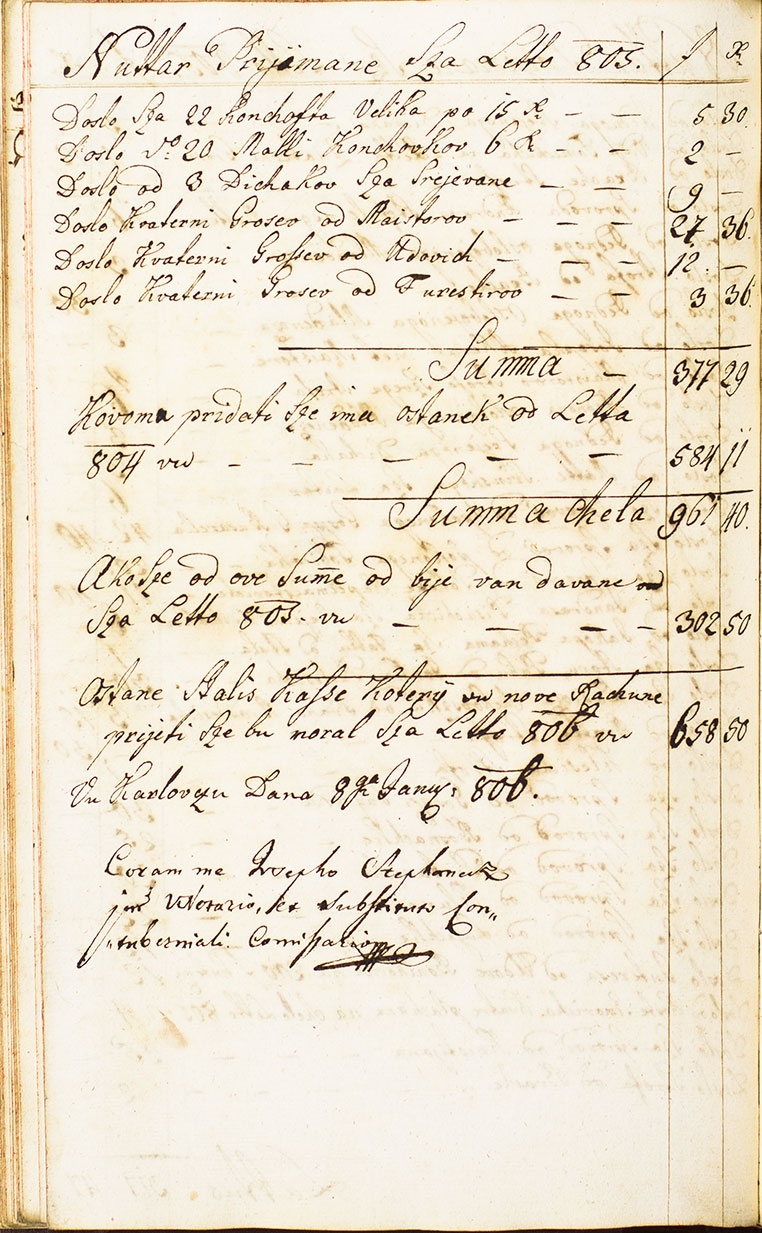 Nuttar Prijimane Sza Letto 805. f xr
Doslo Sza 22 Konchofta Velika po 15 xr — — 5 30.
Doslo do 20 Malli Konchovkov 6 xr — — 2 —
Doslo od 3 Dichakov Sza Srejevane — — 9 —
Doslo Kvaterni Grosev od Maistorov — — — 27 36.
Doslo Kvaterni Grossev od Udovich — — — 12. —
Doslo Kvaterni Grosev od Furestirov — — 3 36.
Summa — 377 29
Kovoma pridati Sze ima ostanek od Letta
804 vu — — — — — 584 11
Summa Chela 961 40.
Ako Sze od ove Summe od bije van davane
Sza Letto 805. vu — — — — 302 50
Ostane Stalis Kasse Koterij vu nove Rachune
prijeti Sze bu moral Sza Letto 806 vu 658 50
Vu Karlovczu Dana 8ga Janury: 806.
Coram me Josepho
jur Notario, et Substituto Con„
„tuberniali Comissario